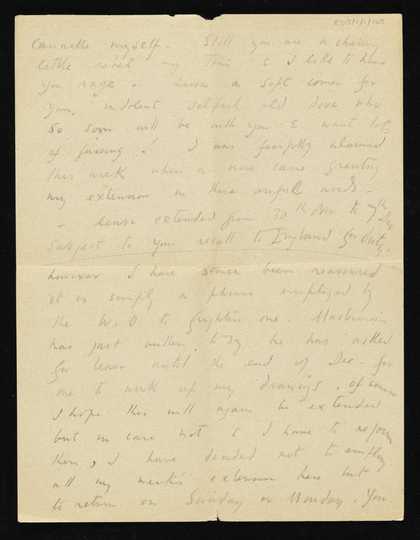 myself. Still you are a
little my & I like to have
you rage. a soft corner for
your indolent selfish old dove who
so soon will be with you & want lots
of fussing! I was fearfully alarmed
this week when a came granting
my extension in these awful words -
" leave extended from 30th Nov to 7th Dec
subject to your recall to England for duty."
however I have since been reassured
it is simply a phrase employed by
the W.O to frighten one.
has just written to say he has asked
for leave until the end of Dec. for
me to work up my drawings, of course
I hope this will again be extended
but in case not & I have to rejoin
then, I have decided not to employ
all my week's extension here but
to return on Sunday or Monday. You